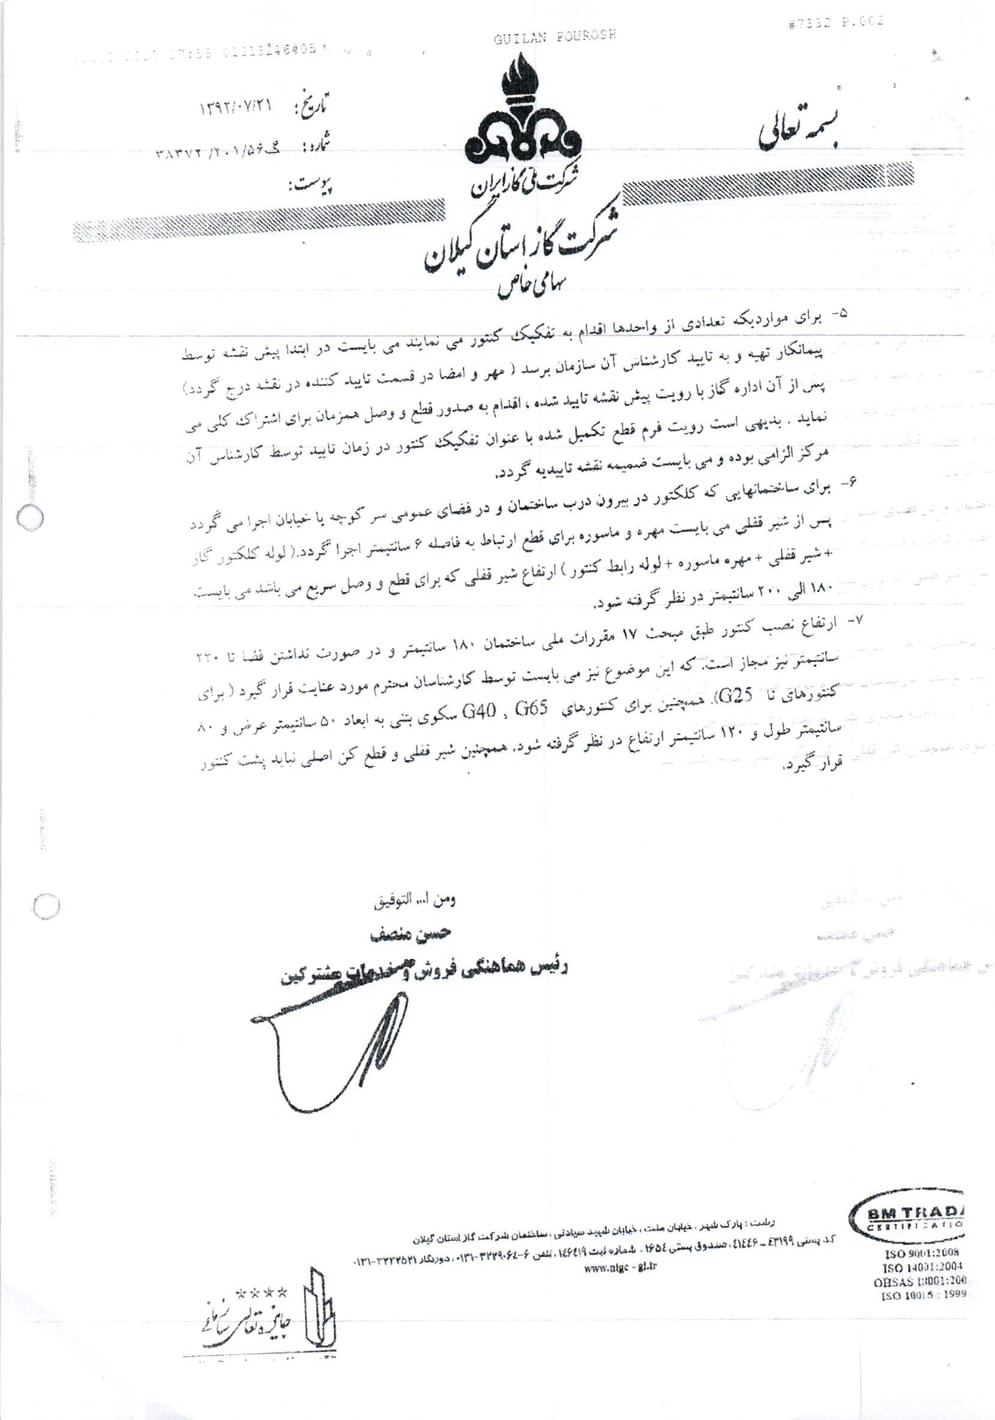 GUILAN POUROSH
#7332 P.002
بسمه تعالی
تاریخ: ۱۳۹۲/۰۷/۲۱
شماره: گ۲۰۱/۵۶/ ۳۸۳۷۲
پیوست:
شرکت ملی گاز ایران
شرکت گاز استان گیلان
سهامی خاص
۵- برای مواردیکه تعدادی از واحدها اقدام به تفکیک کنتور می نمایند می بایست در ابتدا پیش نقشه توسط
پیمانکار تهیه و به تایید کارشناس آن سازمان برسد ( مهر و امضا در قسمت تایید کننده در نقشه درج گردد)
پس از آن اداره گاز با رویت پیش نقشه تایید شده ، اقدام به صدور قطع و وصل همزمان برای اشتراک کلی می
نماید . بدیهی است رویت فرم قطع تکمیل شده با عنوان تفکیک کنتور در زمان تایید توسط کارشناس آن
مرکز الزامی بوده و می بایست ضمیمه نقشه تاییدیه گردد.
۶- برای ساختمانهایی که کلکتور در بیرون درب ساختمان و در فضای عمومی سر کوچه یا خیابان اجرا می گردد
پس از شیر قفلی می بایست مهره و ماسوره برای قطع ارتباط به فاصله ۶ سانتیمتر اجرا گردد.( لوله کلکتور گاز
+ شیر قفلی + مهره ماسوره + لوله رابط کنتور ) ارتفاع شیر قفلی که برای قطع و وصل سریع می باشد می بایست
۱۸۰ الی ۲۰۰ سانتیمتر در نظر گرفته شود.
۷- ارتفاع نصب کنتور طبق مبحث ۱۷ مقررات ملی ساختمان ۱۸۰ سانتیمتر و در صورت نداشتن فضا تا ۲۲۰
سانتیمتر نیز مجاز است. که این موضوع نیز می بایست توسط کارشناسان محترم مورد عنایت قرار گیرد ( برای
کنتورهای تا G25). همچنین برای کنتورهای G40 , G65 سکوی بتنی به ابعاد ۵۰ سانتیمتر عرض و ۸۰
سانتیمتر طول و ۱۲۰ سانتیمتر ارتفاع در نظر گرفته شود. همچنین شیر قفلی و قطع کن اصلی نباید پشت کنتور
قرار گیرد.
ومن ا... التوفیق
حسن منصف
رئیس هماهنگی فروش و خدمات مشترکین
رشت : پارک شهر . خیابان ملت ، خیابان شهید سیادتی ، ساختمان شرکت گاز استان گیلان
کد پستی ۴۳۱۹۹ – ۴۱۴۴۶، صندوق پستی ۱۶۵۴ . شماره ثبت ۱۴۶۴۱۹، تلفن ۶-۳۲۲۹۰۶۴-۰۱۳۱ دورنگار ۳۲۲۲۵۲۱-۰۱۳۱
www.nigc-gl.ir
BM TRADA
CERTIFICATIO
ISO 9001:2008
ISO 14001:2004
OHSAS 18001:200
ISO 10015 : 1999
****
جایزه تعالی سازمانی